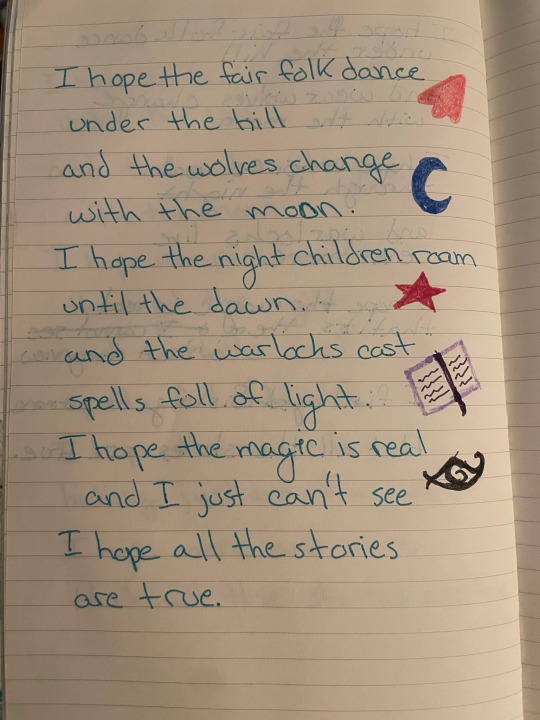 I hope the fair folk dance
under the hill
and the wolves change
with the moon.
I hope the night children roam
until the dawn.
and the warlocks cast
spells full of light.
I hope the magic is real
and I just can't see
I hope all the stories
are true.